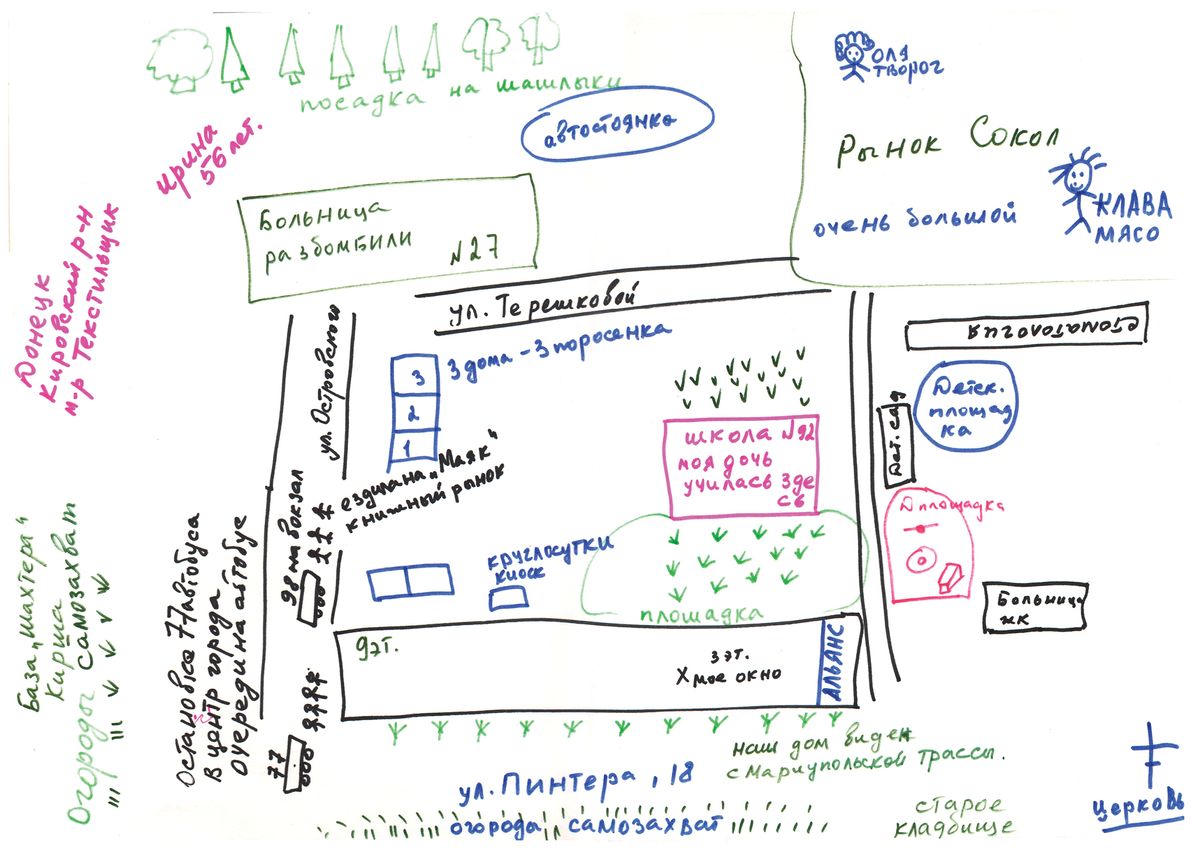 посадка на шашлыки
Ирина
56 лет.
автостоянка
Оля
творог
Рынок Сокол
очень большой
КЛАВА
МЯСО
Больница
разбомбили
N27
Донецк
Кировский р-н
м-р Текстильщик
ул. Терешковой
ул. Островского
3 дома - 3 поросенка
3
2
1
ездила на „Маяк“
книжный рынок
школа N92
моя дочь
училась зде
сь
стоматология
Детск.
площад
ка
Дет. сад
Д площадка
Больница
жк
круглосутки
киоск
площадка
98 на вокзал
Остановка 77 автобуса
в центр города
очереди на автобус
77
База „Шахтера“
Кирша
Огороды самозахват
9эт.
3 эт.
X мое окно
АЛЬЯНС
наш дом виден
с Мариупольской трассы.
ул. Пинтера, 18
огорода, самозахват
старое
кладбище
церковь